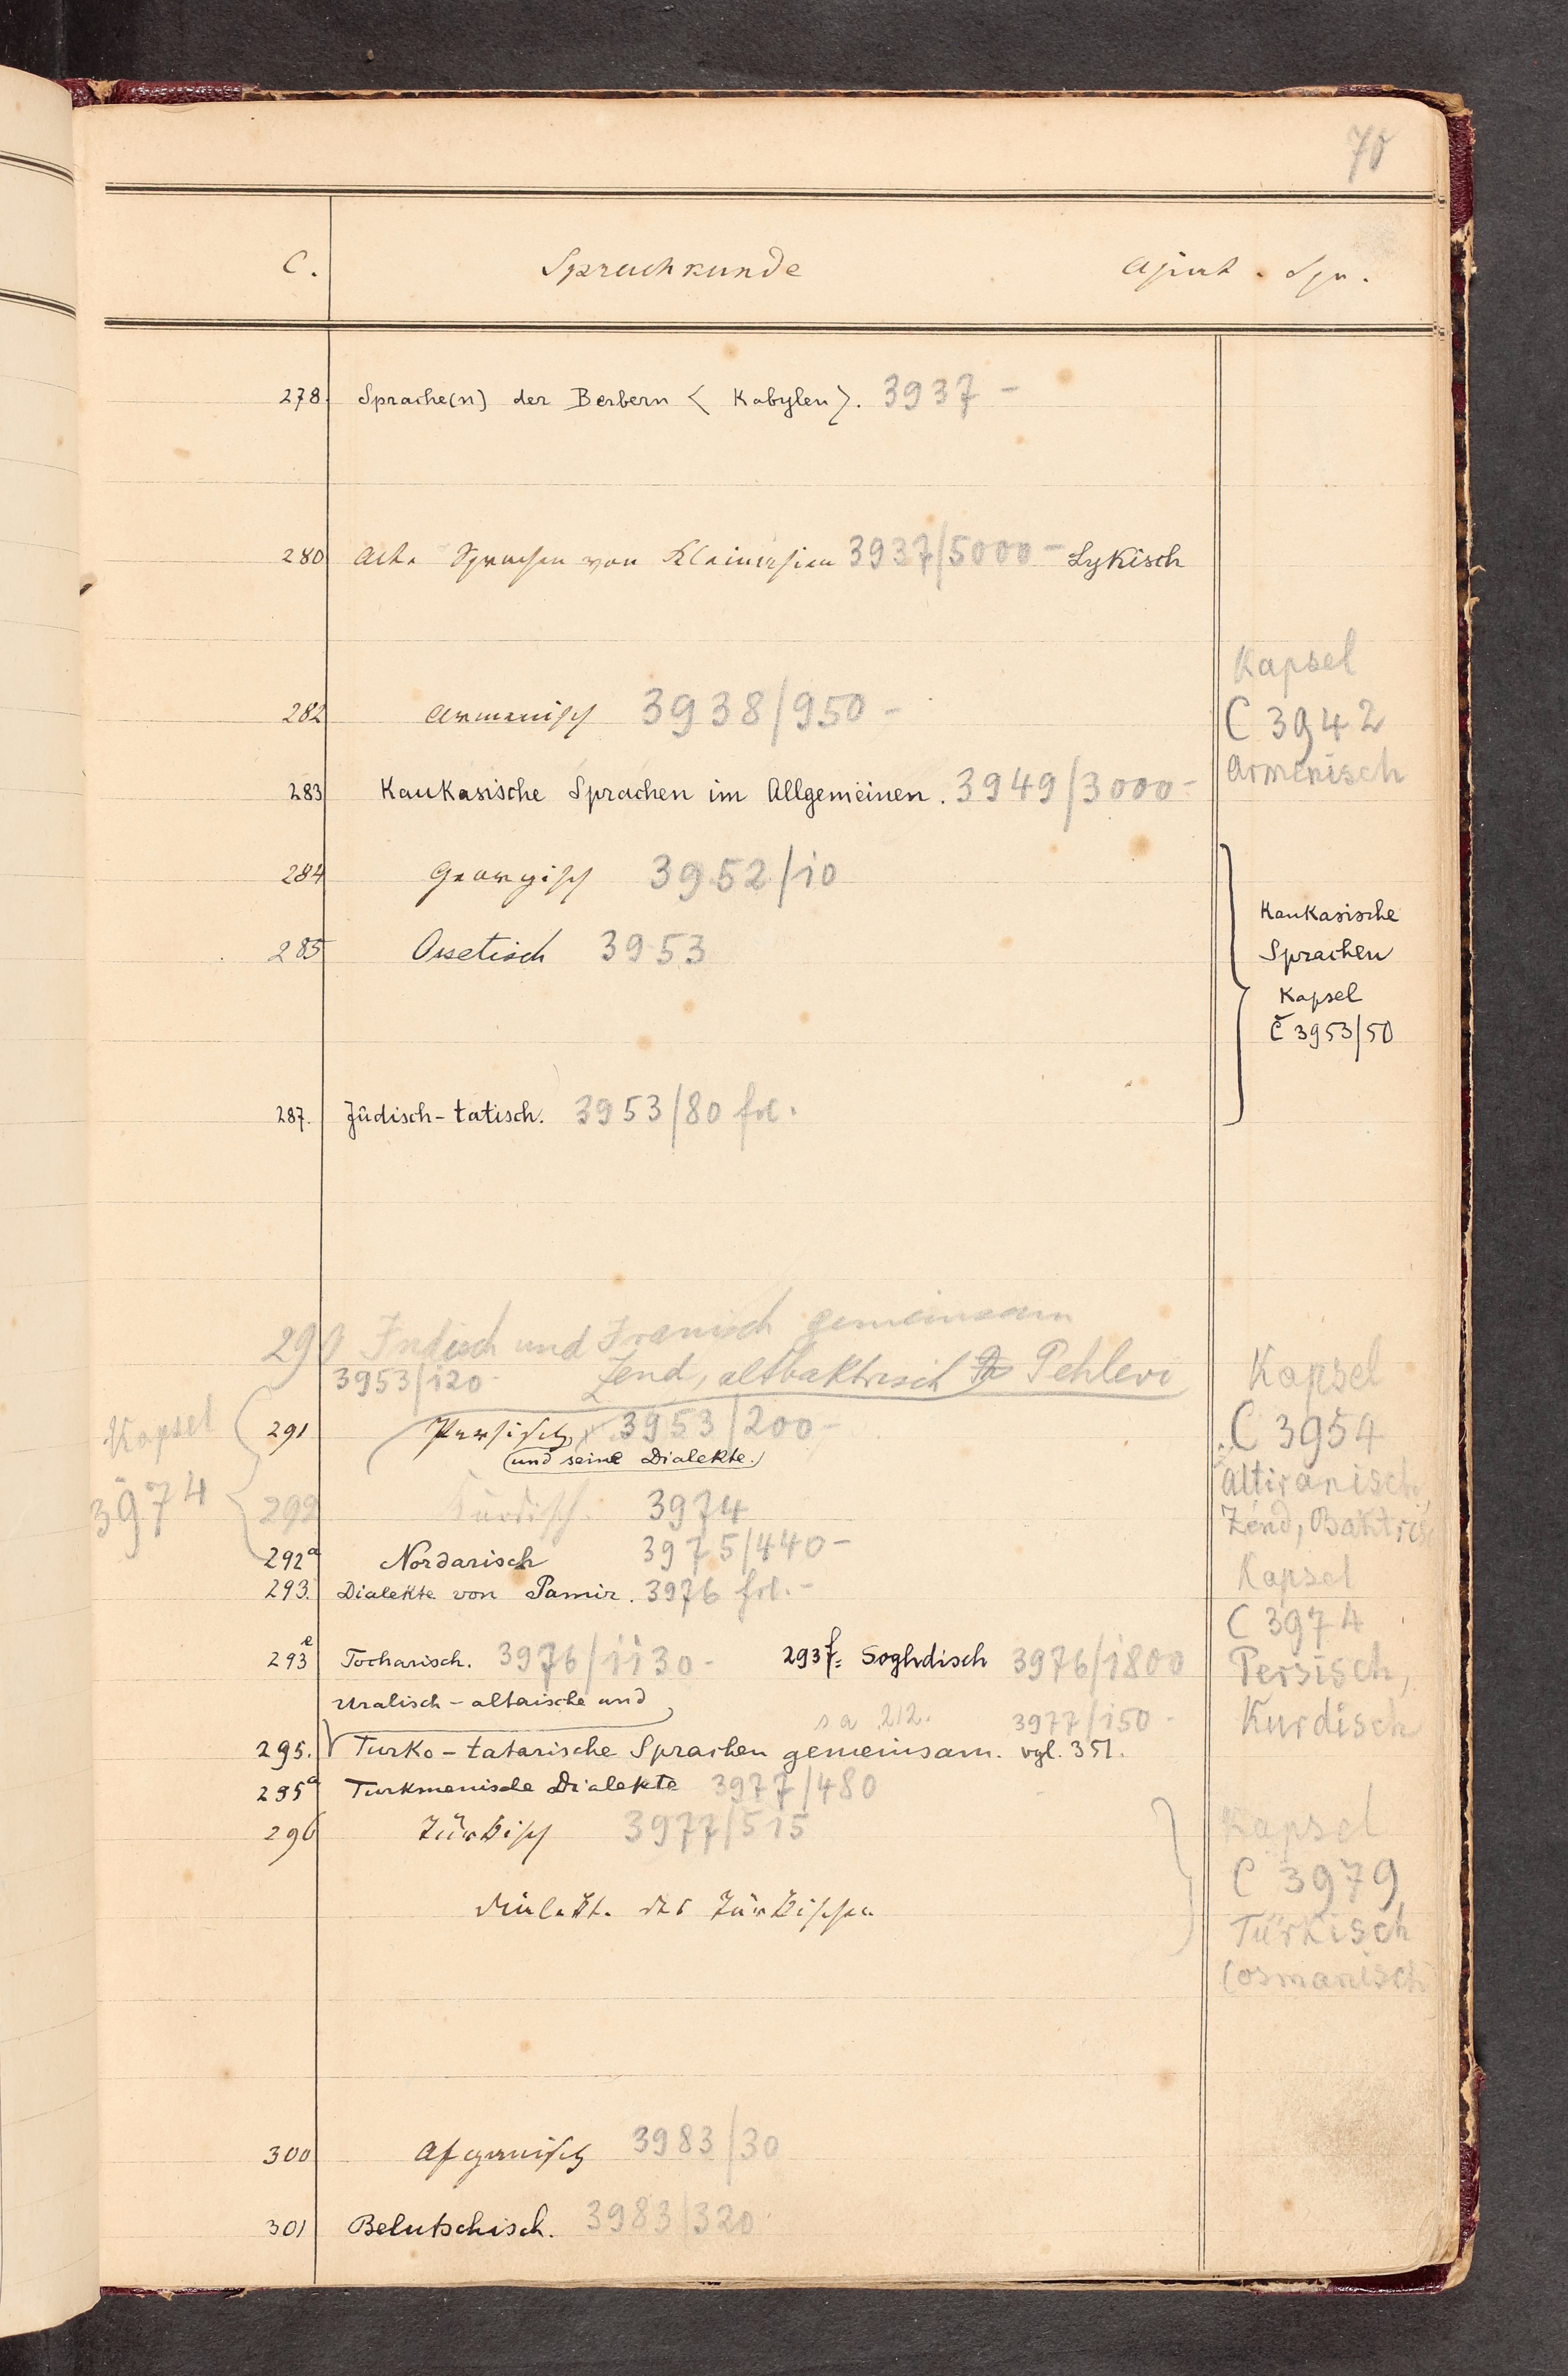 70
C. Sprachkunde Asiat. Spr.
278. Sprache(n) der Berbern < Kabylen >. 3937 -
280 Alte Sprachen von Kleinasien 3937/5000 - Lykisch
Kapsel
282 Armenisch 3938/950 -
C 3942
Armenisch
283 Kaukasische Sprachen im Allgemeinen. 3949/3000 -
284 Georgisch 3952/10
285 Ossetisch 3953
Kaukasische
Sprachen
Kapsel
C 3953/50
287. Jüdisch-tatisch. 3953/80 frl.
290 Indisch und Iranisch gemeinsam
3953/120 - Zend, altbaktrisch Pehlevi
Kapsel
3974
291 Persisch 3953/200 -
und seine Dialekte.
292 Kurdisch. 3974
292a Nordarisch 3975/440 -
293. Dialekte von Pamir. 3976 frl. -
Kapsel
C 3954
Altiranisch,
Zend, Baktrisc
Kapsel
C 3974
Persisch,
Kurdisch
293e Tocharisch. 3976/1130 - 293f= Soghdisch 3976/1800
Uralisch-altaische und
s a 212. 3977/150 -
295. Turko-tatarische Sprachen gemeinsam. vgl. 351.
295a Turkmenische Dialekte 3977/480
296 Türkisch 3977/515
Dialekte des Türkischen
Kapsel
C 3979
Türkisch
(osmanisch
300 Afganisch 3983/30
301 Belutschisch. 3983/320